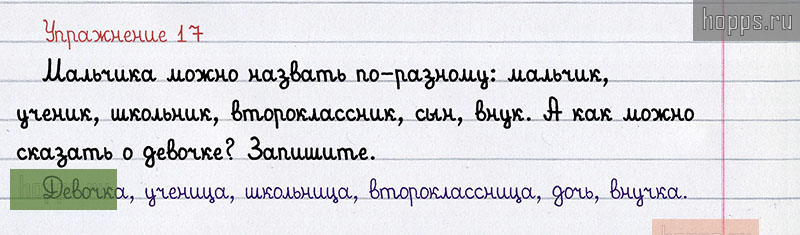 hopps.ru
Упражнение 17
Мальчика можно назвать по-разному: мальчик,
ученик, школьник, второклассник, сын, внук. А как можно
сказать о девочке? Запишите.
Девочка, ученица, школьница, второклассница, дочь, внучка.